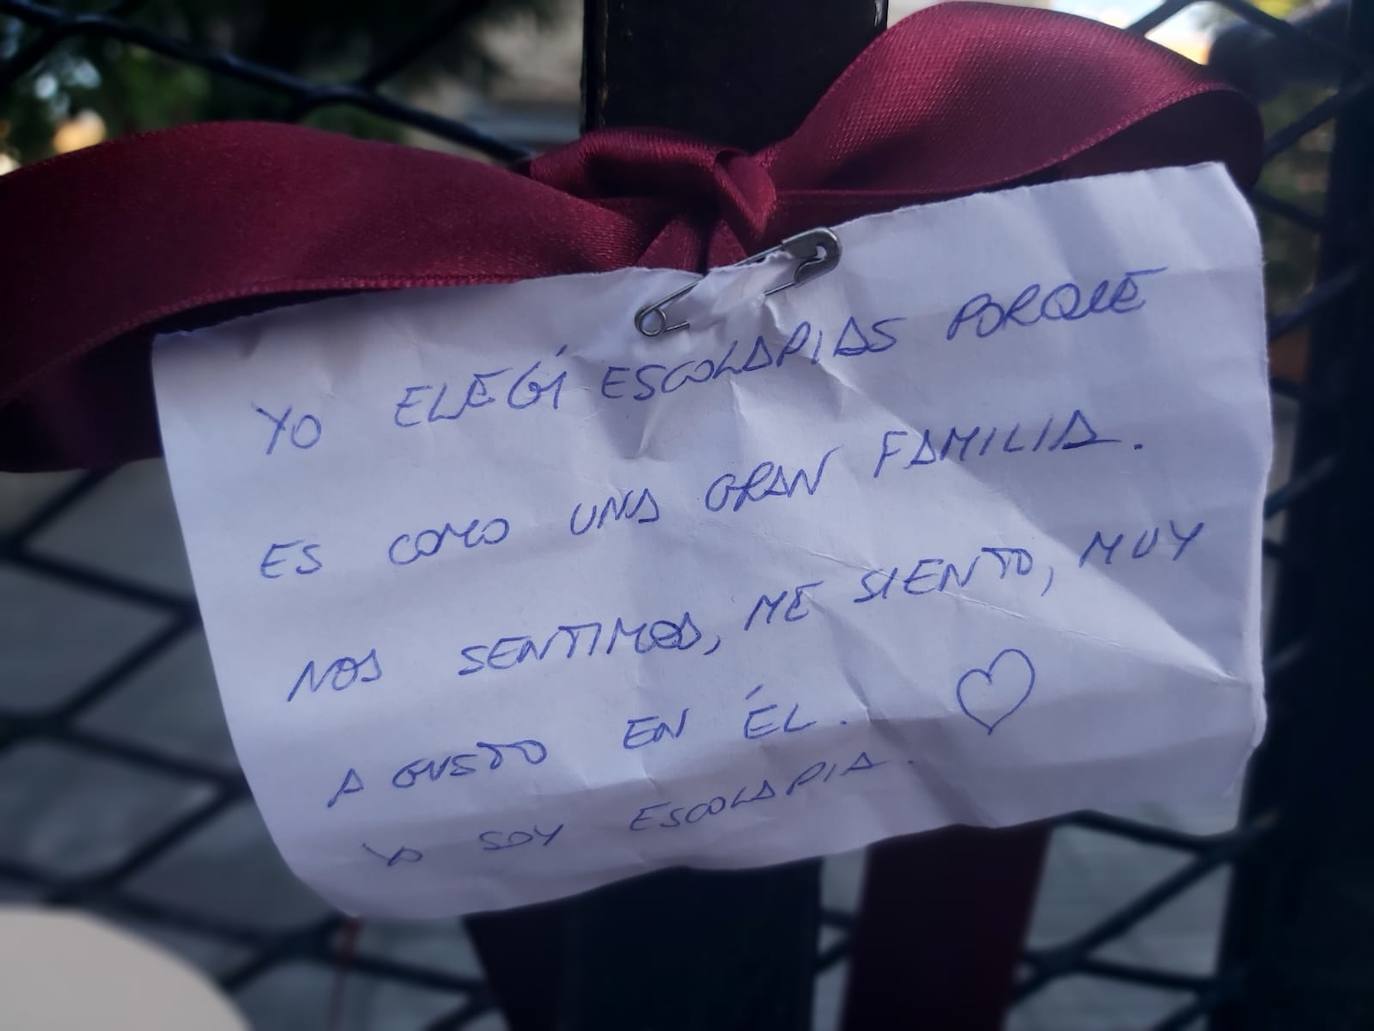 YO ELEGÍ ESCOLAPIAS PORQUE
ES COMO UNA GRAN FAMILIA.
NOS SENTIMOS, ME SIENTO, MUY
A GUSTO EN ÉL.
YO SOY ESCOLAPIA.